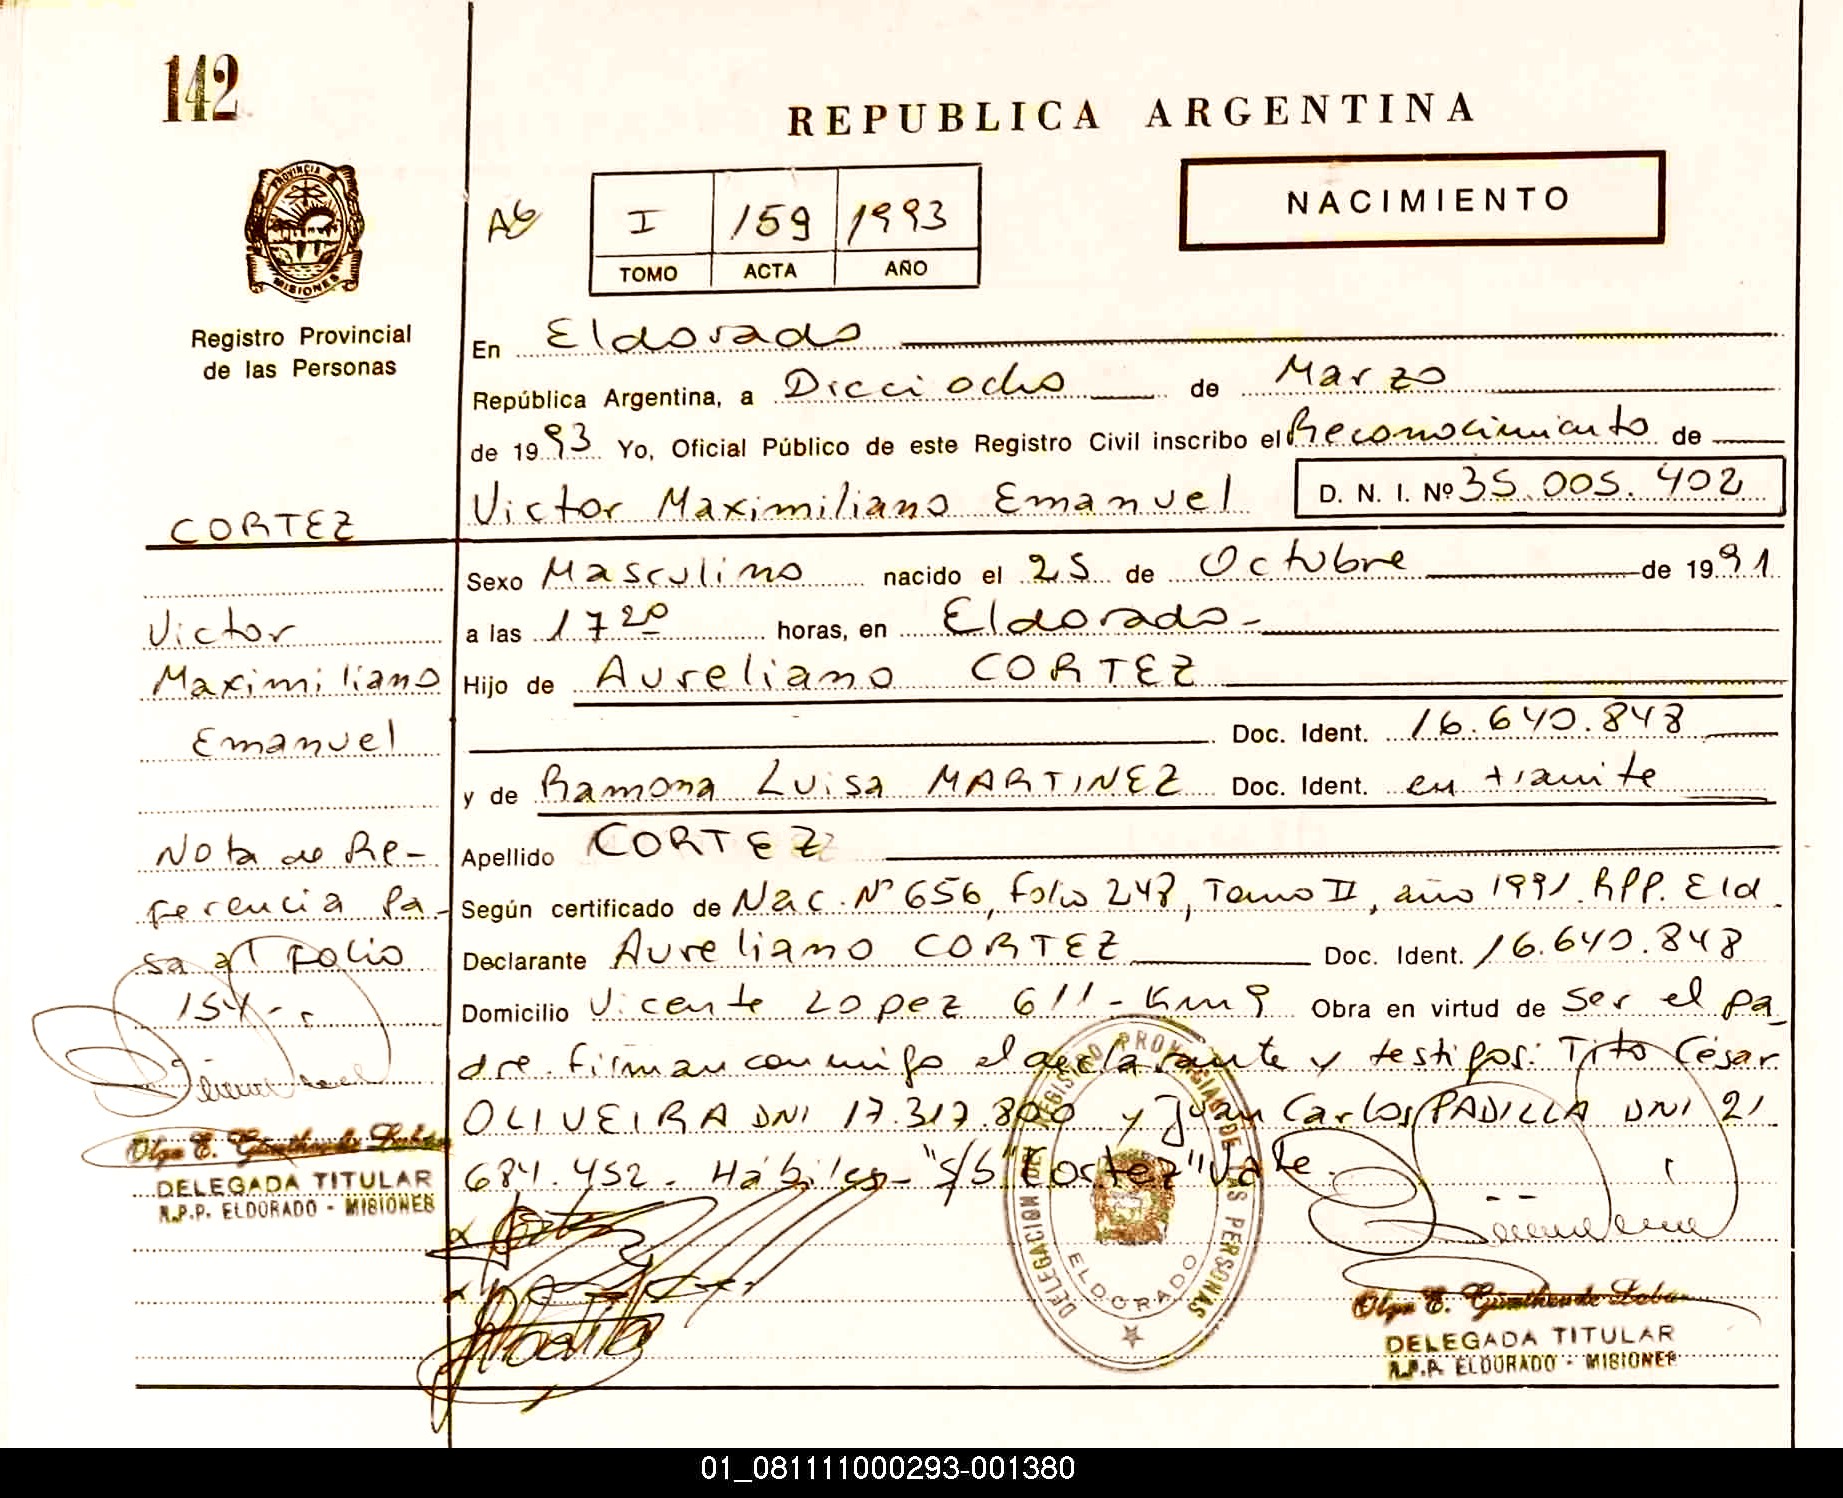 142
REPUBLICA ARGENTINA
PROVINCIA DE
MISIONES
I 159 1993
TOMO ACTA AÑO
NACIMIENTO
Registro Provincial
de las Personas
En Eldorado
República Argentina, a Dieciocho de Marzo
de 1993 Yo, Oficial Público de este Registro Civil inscribo el Reconocimiento de
Victor Maximiliano Emanuel D. N. I. Nº 35.005.402
CORTEZ
Sexo Masculino nacido el 25 de Octubre de 1991
Victor
Maximiliano
Emanuel
a las 17 20 horas, en Eldorado-
Hijo de Aureliano CORTEZ
Doc. Ident. 16.640.848
y de Ramona Luisa MARTINEZ Doc. Ident. en tramite
Apellido CORTEZ
Nota de Re-
ferencia Pa-
sa al Folio
154-.
Según certificado de Nac. Nº 656, Folio 248, Tomo II, año 1991. RPP. Eld.
Declarante Aureliano CORTEZ Doc. Ident. 16.640.848
Domicilio Vicente Lopez 611-Km 9 Obra en virtud de ser el pa-
dre. firman conmigo el declarante y testigos: Tito César
OLIVEIRA DNI 17.317.800 y Juan Carlos PADILLA DNI 21
684.452. Hábiles- "s/b" Cortez" Vale.
Olga E.
DELEGADA TITULAR
R.P.P. ELDORADO - MISIONES
DELEGACION DEL REGISTRO PROVINCIAL DE LAS PERSONAS
ELDORADO
Olga E.
DELEGADA TITULAR
R.P.P. ELDORADO - MISIONES
01_081111000293-001380